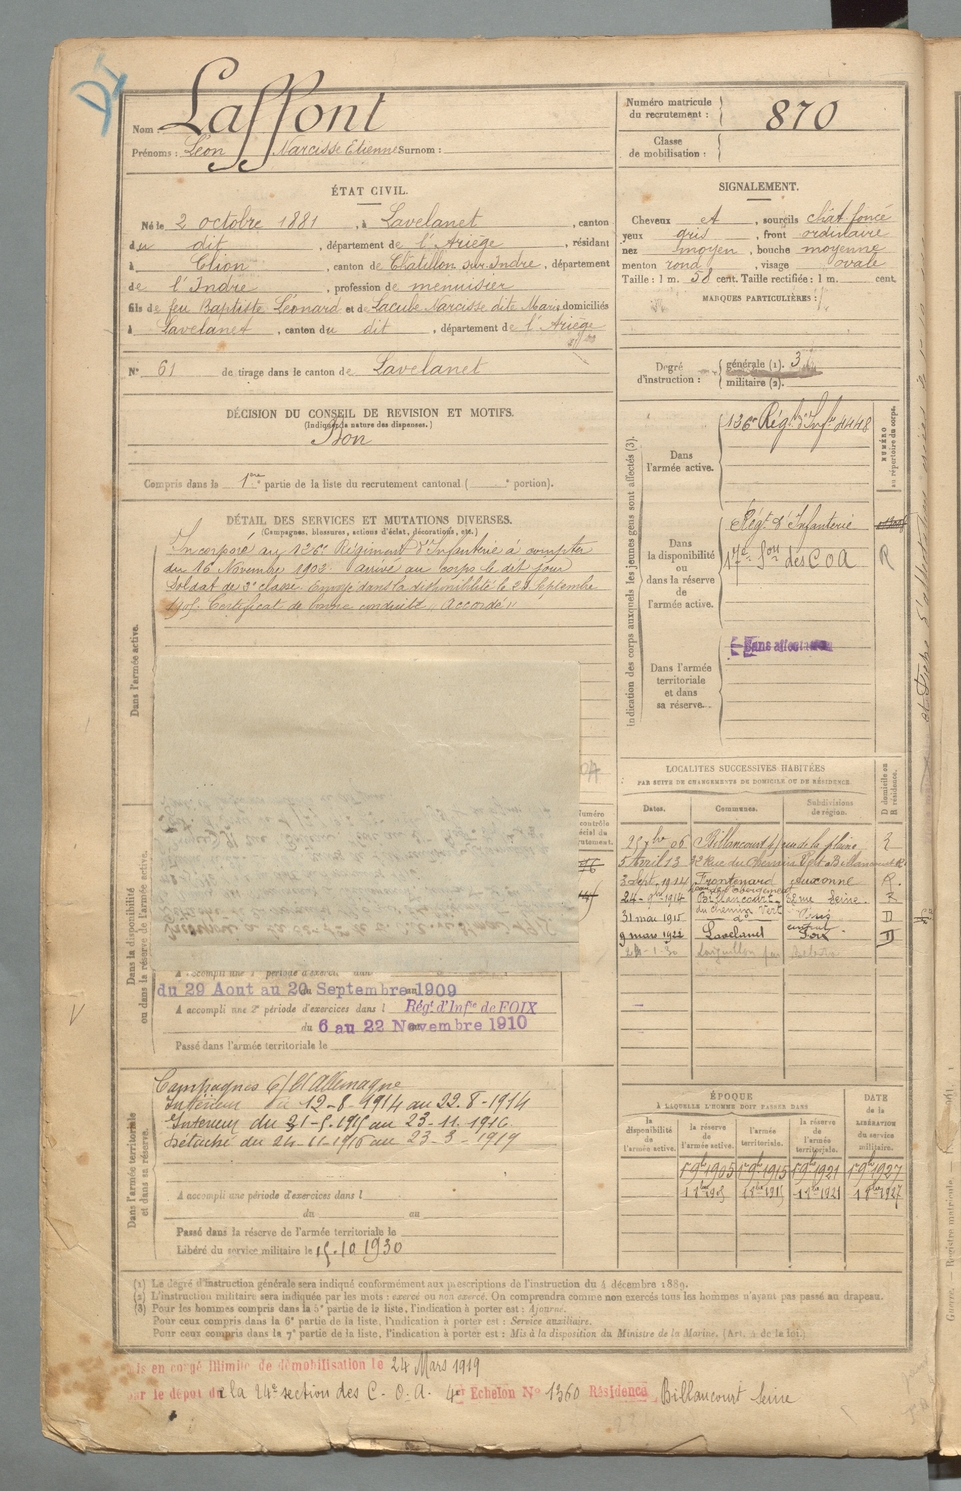 Nom : Laffont
Prénoms : Léon Narcisse Etienne Surnom :
ÉTAT CIVIL.
Né le 2 octobre 1881, à Lavelanet, canton
du dit, département de l'Ariège, résidant
à Clion, canton de Châtillon sur Indre, département
de l'Indre, profession de menuisier
fils de feu Baptiste Léonard et de Lacube Narcisse dite Marie domiciliés
à Lavelanet, canton du dit, département de l'Ariège
N° 61 de tirage dans le canton de Lavelanet
DÉCISION DU CONSEIL DE REVISION ET MOTIFS.
(Indiquer la nature des dispenses.)
Bon
Compris dans la 1ère partie de la liste du recrutement cantonal ( portion).
DÉTAIL DES SERVICES ET MUTATIONS DIVERSES.
(Campagnes, blessures, actions d'éclat, décorations, etc.)
Dans l'armée active.
Incorporé au 136e Régiment d'Infanterie à compter
du 16 Novembre 1902. Arrivé au corps le dit jour
Soldat de 2e classe. Envoyé dans la disponibilité le Septembre
1905. Certificat de bonne conduite « Accordé »
Dans la disponibilité
ou dans la réserve de l'armée active.
A accompli une 1e période d'exercices dans
du 29 Aout au 20 Septembre 1909
A accompli une 2e période d'exercices dans l Régt d'Infie de FOIX
du 6 au 22 Novembre 1910
Passé dans l'armée territoriale le
Dans l'armée territoriale
et dans sa réserve.
Campagnes c/ l'Allemagne
Intérieur du 12-8-1914 au 22-8-1914
Intérieur du 31-5-1915 au 23-11-1916
Détaché du 24-11-1916 au 23-3-1919
A accompli une période d'exercices dans l
du au
Passé dans la réserve de l'armée territoriale le
Libéré du service militaire le 15.10.1930
Numéro matricule
du recrutement : 870
Classe
de mobilisation :
SIGNALEMENT.
Cheveux et, sourcils chât foncé
yeux gris, front ordinaire
nez moyen, bouche moyenne
menton rond, visage ovale
Taille : 1 m. 58 cent. Taille rectifiée : 1 m. cent.
MARQUES PARTICULIÈRES :
Degré
d'instruction :
générale (1). 3
militaire (2).
Indication des corps auxquels les jeunes gens sont affectés (3).
NUMÉRO
au répertoire du corps.
Dans
l'armée active.
136e Régt d'Infie 4448
Dans
la disponibilité
ou
dans la réserve
de
l'armée active.
Régt d'Infanterie
17e Son des COA R
Dans l'armée
territoriale
et dans
sa réserve.
Sans affectation
LOCALITÉS SUCCESSIVES HABITÉES
PAR SUITE DE CHANGEMENTS DE DOMICILE OU DE RÉSIDENCE.
Dates. Communes. Subdivisions de région. D domicile ou R résidence.
Billancourt R
5 Avril 13 32 Rue du Chemin Vert Billancourt R.
3 sept. 1914 Frontenard Auxonne R.
24-1914 Billancourt 32 rue Seine. R
du chemin Vert
31 mai 1915 do D
9 mars 1922 Lavelanet Foix D
ÉPOQUE
À LAQUELLE L'HOMME DOIT PASSER DANS
la disponibilité de l'armée active.
la réserve de l'armée active.
l'armée territoriale.
la réserve de l'armée territoriale.
DATE de la LIBÉRATION du service militaire.
1 9bre 1905 1 9bre 1915 1 9bre 1921 1 9bre 1927
(1) Le degré d'instruction générale sera indiqué conformément aux prescriptions de l'instruction du 4 décembre 1889.
(2) L'instruction militaire sera indiquée par les mots : exercé ou non exercé. On comprendra comme non exercés tous les hommes n'ayant pas passé au drapeau.
(3) Pour les hommes compris dans la 5e partie de la liste, l'indication à porter est : Ajourné.
Pour ceux compris dans la 6e partie de la liste, l'indication à porter est : Service auxiliaire.
Pour ceux compris dans la 7e partie de la liste, l'indication à porter est : Mis à la disposition du Ministre de la Marine. (Art. 4 de la loi.)
is en congé illimité de démobilisation le 24 Mars 1919
par le dépôt de la 24e section des C.O.A. 4e Echelon No 1360 Résidence Billancourt Seine
Guerre. — Registre matricule.